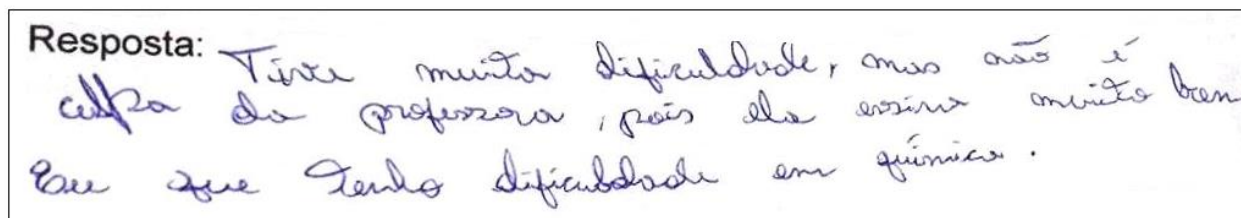 Resposta: Tive muita dificuldade, mas não é
culpa da professora, pois ela ensina muito bem
Eu que tenho dificuldade em química.